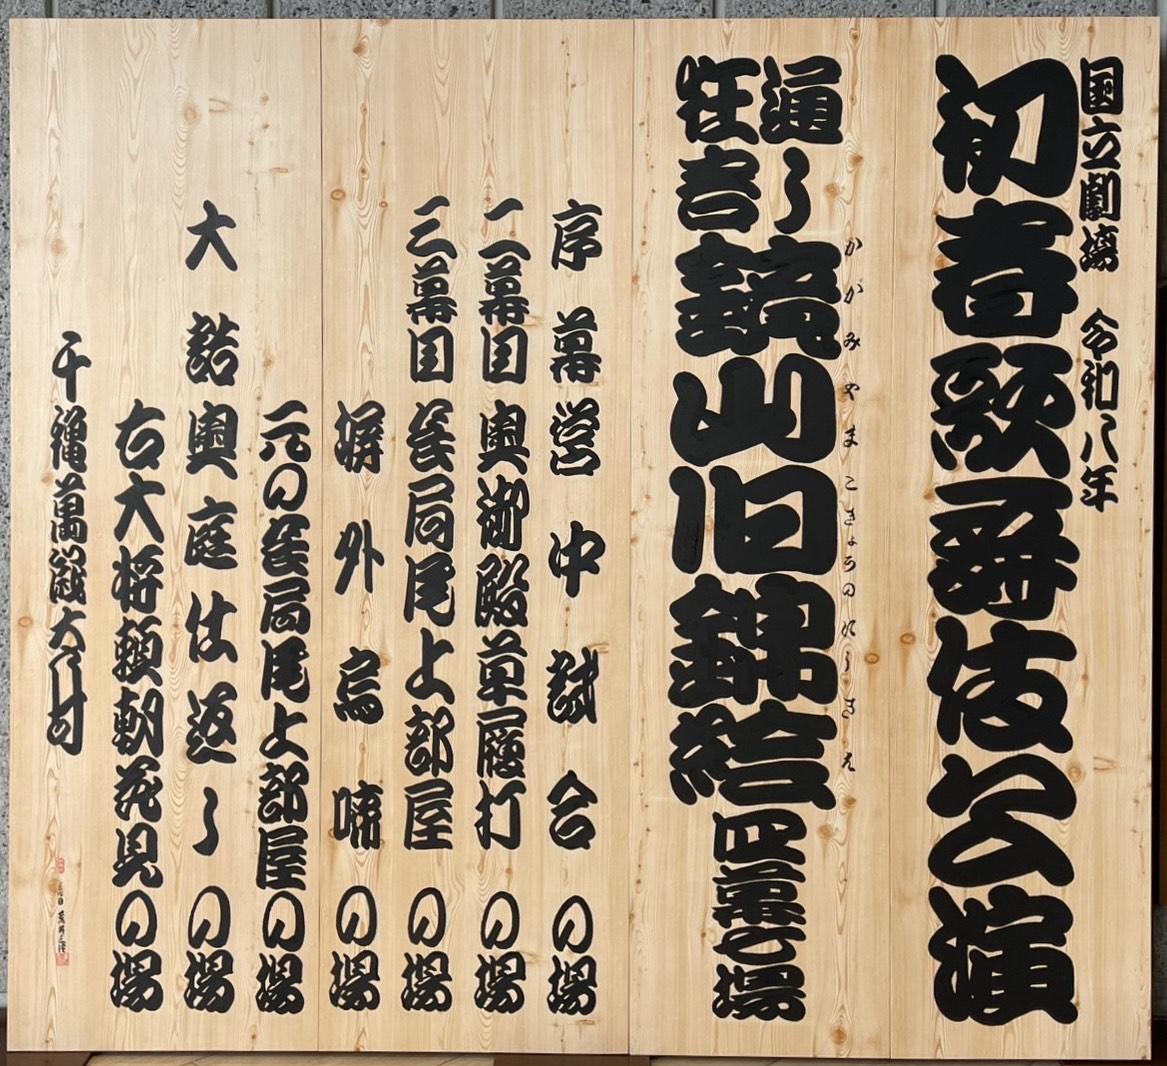 国立劇場 令和八年
初春歌舞伎公演
通し狂言
鏡山旧錦絵 四幕七場
かがみやまこきょうのにしきえ
序幕 営中試合の場
二幕目 奥御殿草履打の場
三幕目 長局尾上部屋の場
塀外烏啼の場
元の長局尾上部屋の場
大詰 奥庭仕返しの場
右大将頼朝花見の場
千穐萬歳大々叶